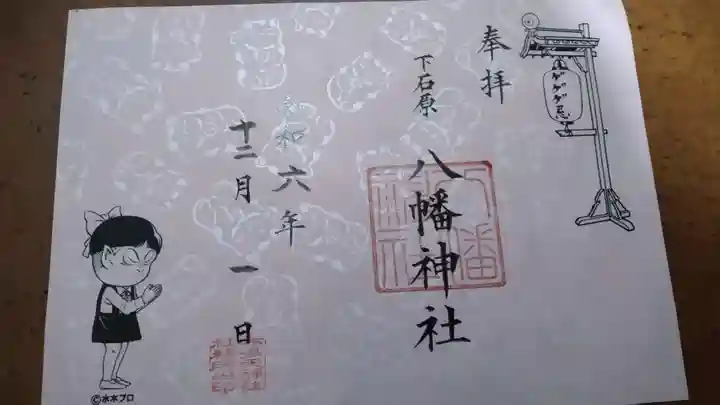 奉拝
下石原
八幡神社
令和六年
十二月一日
ゲゲゲ忌
©水木プロ